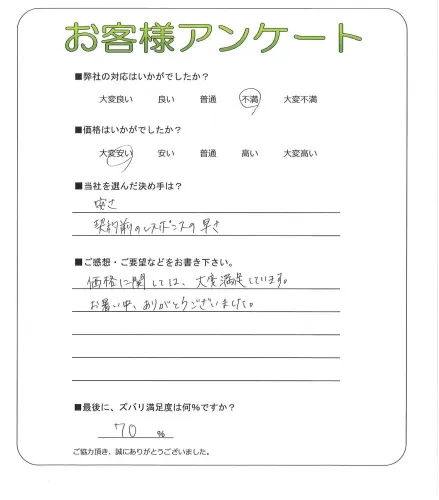 お客様アンケート
■弊社の対応はいかがでしたか？
大変良い 良い 普通 不満 大変不満
■価格はいかがでしたか？
大変安い 安い 普通 高い 大変高い
■当社を選んだ決め手は？
安さ
契約前のレスポンスの早さ
■ご感想・ご要望などをお書き下さい。
価格に関しては、大変満足しています。
お暑い中、ありがとうございました。
■最後に、ズバリ満足度は何％ですか？
70 ％
ご協力頂き、誠にありがとうございました。